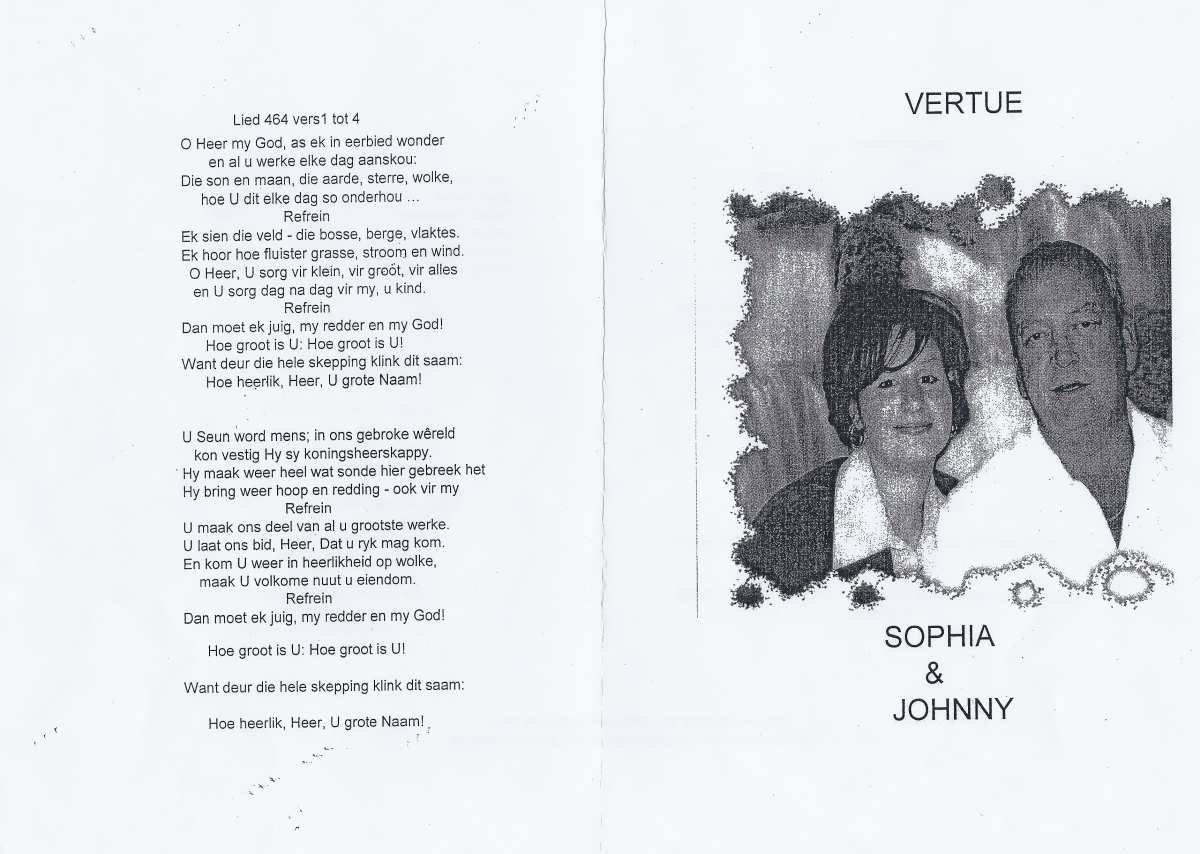 Lied 464 vers1 tot 4
O Heer my God, as ek in eerbied wonder
en al u werke elke dag aanskou:
Die son en maan, die aarde, sterre, wolke,
hoe U dit elke dag so onderhou ...
Refrein
Ek sien die veld - die bosse, berge, vlaktes.
Ek hoor hoe fluister grasse, stroom en wind.
O Heer, U sorg vir klein, vir groot, vir alles
en U sorg dag na dag vir my, u kind.
Refrein
Dan moet ek juig, my redder en my God!
Hoe groot is U: Hoe groot is U!
Want deur die hele skepping klink dit saam:
Hoe heerlik, Heer, U grote Naam!
U Seun word mens; in ons gebroke wêreld
kon vestig Hy sy koningsheerskappy.
Hy maak weer heel wat sonde hier gebreek het
Hy bring weer hoop en redding - ook vir my
Refrein
U maak ons deel van al u grootste werke.
U laat ons bid, Heer, Dat u ryk mag kom.
En kom U weer in heerlikheid op wolke,
maak U volkome nuut u eiendom.
Refrein
Dan moet ek juig, my redder en my God!
Hoe groot is U: Hoe groot is U!
Want deur die hele skepping klink dit saam:
Hoe heerlik, Heer, U grote Naam!
VERTUE
SOPHIA
&
JOHNNY